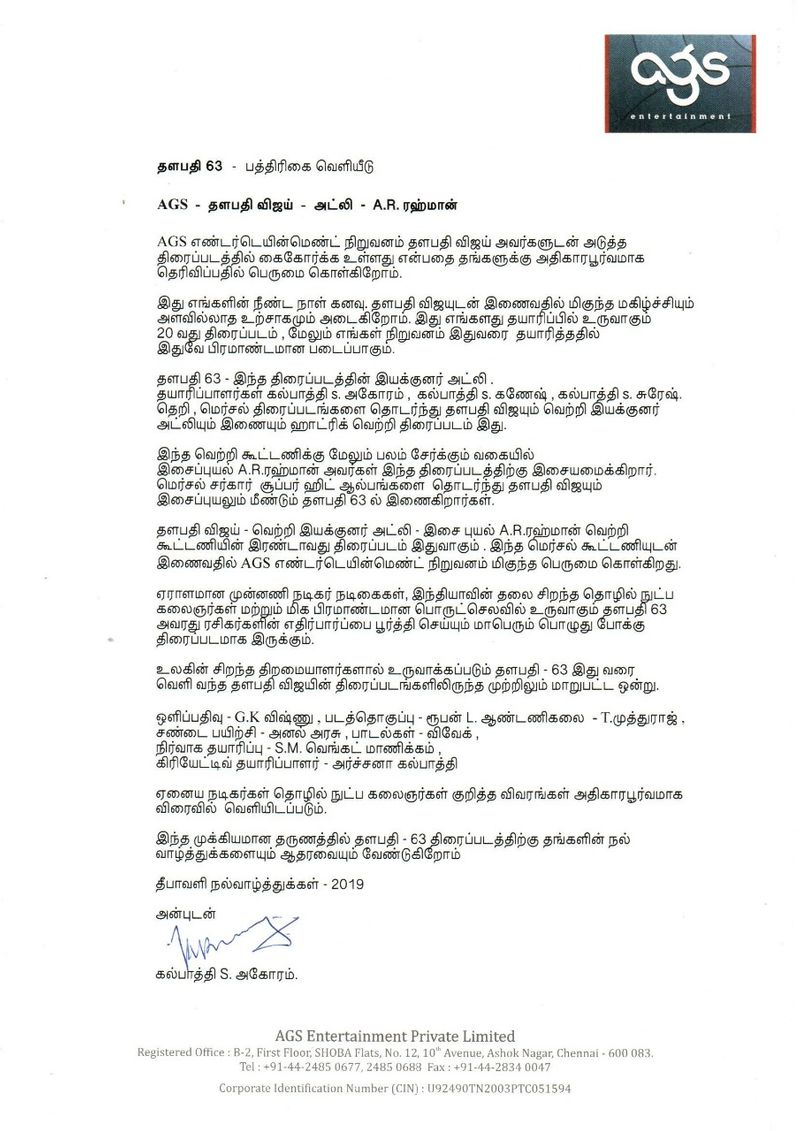 ags
entertainment
தளபதி 63 - பத்திரிகை வெளியீடு
AGS - தளபதி விஜய் - அட்லி - A.R. ரஹ்மான்
AGS எண்டர்டெயின்மெண்ட் நிறுவனம் தளபதி விஜய் அவர்களுடன் அடுத்த
திரைப்படத்தில் கைகோர்க்க உள்ளது என்பதை தங்களுக்கு அதிகாரபூர்வமாக
தெரிவிப்பதில் பெருமை கொள்கிறோம்.
இது எங்களின் நீண்ட நாள் கனவு. தளபதி விஜயுடன் இணைவதில் மிகுந்த மகிழ்ச்சியும்
அளவில்லாத உற்சாகமும் அடைகிறோம். இது எங்களது தயாரிப்பில் உருவாகும்
20 வது திரைப்படம் , மேலும் எங்கள் நிறுவனம் இதுவரை தயாரித்ததில்
இதுவே பிரமாண்டமான படைப்பாகும்.
தளபதி 63 - இந்த திரைப்படத்தின் இயக்குனர் அட்லி .
தயாரிப்பாளர்கள் கல்பாத்தி s. அகோரம் , கல்பாத்தி s. கணேஷ் , கல்பாத்தி s. சுரேஷ்.
தெறி , மெர்சல் திரைப்படங்களை தொடர்ந்து தளபதி விஜயும் வெற்றி இயக்குனர்
அட்லியும் இணையும் ஹாட்ரிக் வெற்றி திரைப்படம் இது.
இந்த வெற்றி கூட்டணிக்கு மேலும் பலம் சேர்க்கும் வகையில்
இசைப்புயல் A.R.ரஹ்மான் அவர்கள் இந்த திரைப்படத்திற்கு இசையமைக்கிறார்.
மெர்சல் சர்கார் சூப்பர் ஹிட் ஆல்பங்களை தொடர்ந்து தளபதி விஜயும்
இசைப்புயலும் மீண்டும் தளபதி 63 ல் இணைகிறார்கள்.
தளபதி விஜய் - வெற்றி இயக்குனர் அட்லி - இசை புயல் A.R.ரஹ்மான் வெற்றி
கூட்டணியின் இரண்டாவது திரைப்படம் இதுவாகும் . இந்த மெர்சல் கூட்டணியுடன்
இணைவதில் AGS எண்டர்டெயின்மெண்ட் நிறுவனம் மிகுந்த பெருமை கொள்கிறது.
ஏராளமான முன்னணி நடிகர் நடிகைகள், இந்தியாவின் தலை சிறந்த தொழில் நுட்ப
கலைஞர்கள் மற்றும் மிக பிரமாண்டமான பொருட்செலவில் உருவாகும் தளபதி 63
அவரது ரசிகர்களின் எதிர்பார்ப்பை பூர்த்தி செய்யும் மாபெரும் பொழுது போக்கு
திரைப்படமாக இருக்கும்.
உலகின் சிறந்த திறமையாளர்களால் உருவாக்கப்படும் தளபதி - 63 இது வரை
வெளி வந்த தளபதி விஜயின் திரைப்படங்களிலிருந்த முற்றிலும் மாறுபட்ட ஒன்று.
ஒளிப்பதிவு - G.K விஷ்ணு , படத்தொகுப்பு - ரூபன் L. ஆண்டணிகலை - T.முத்துராஜ் ,
சண்டை பயிற்சி - அனல் அரசு , பாடல்கள் - விவேக் ,
நிர்வாக தயாரிப்பு - S.M. வெங்கட் மாணிக்கம் ,
கிரியேட்டிவ் தயாரிப்பாளர் - அர்ச்சனா கல்பாத்தி
ஏனைய நடிகர்கள் தொழில் நுட்ப கலைஞர்கள் குறித்த விவரங்கள் அதிகாரபூர்வமாக
விரைவில் வெளியிடப்படும்.
இந்த முக்கியமான தருணத்தில் தளபதி - 63 திரைப்படத்திற்கு தங்களின் நல்
வாழ்த்துக்களையும் ஆதரவையும் வேண்டுகிறோம்
தீபாவளி நல்வாழ்த்துக்கள் - 2019
அன்புடன்
கல்பாத்தி S. அகோரம்.
AGS Entertainment Private Limited
Registered Office : B-2, First Floor, SHOBA Flats, No. 12, 10th Avenue, Ashok Nagar, Chennai - 600 083.
Tel : +91-44-2485 0677, 2485 0688 Fax : +91-44-2834 0047
Corporate Identification Number (CIN) : U92490TN2003PTC051594